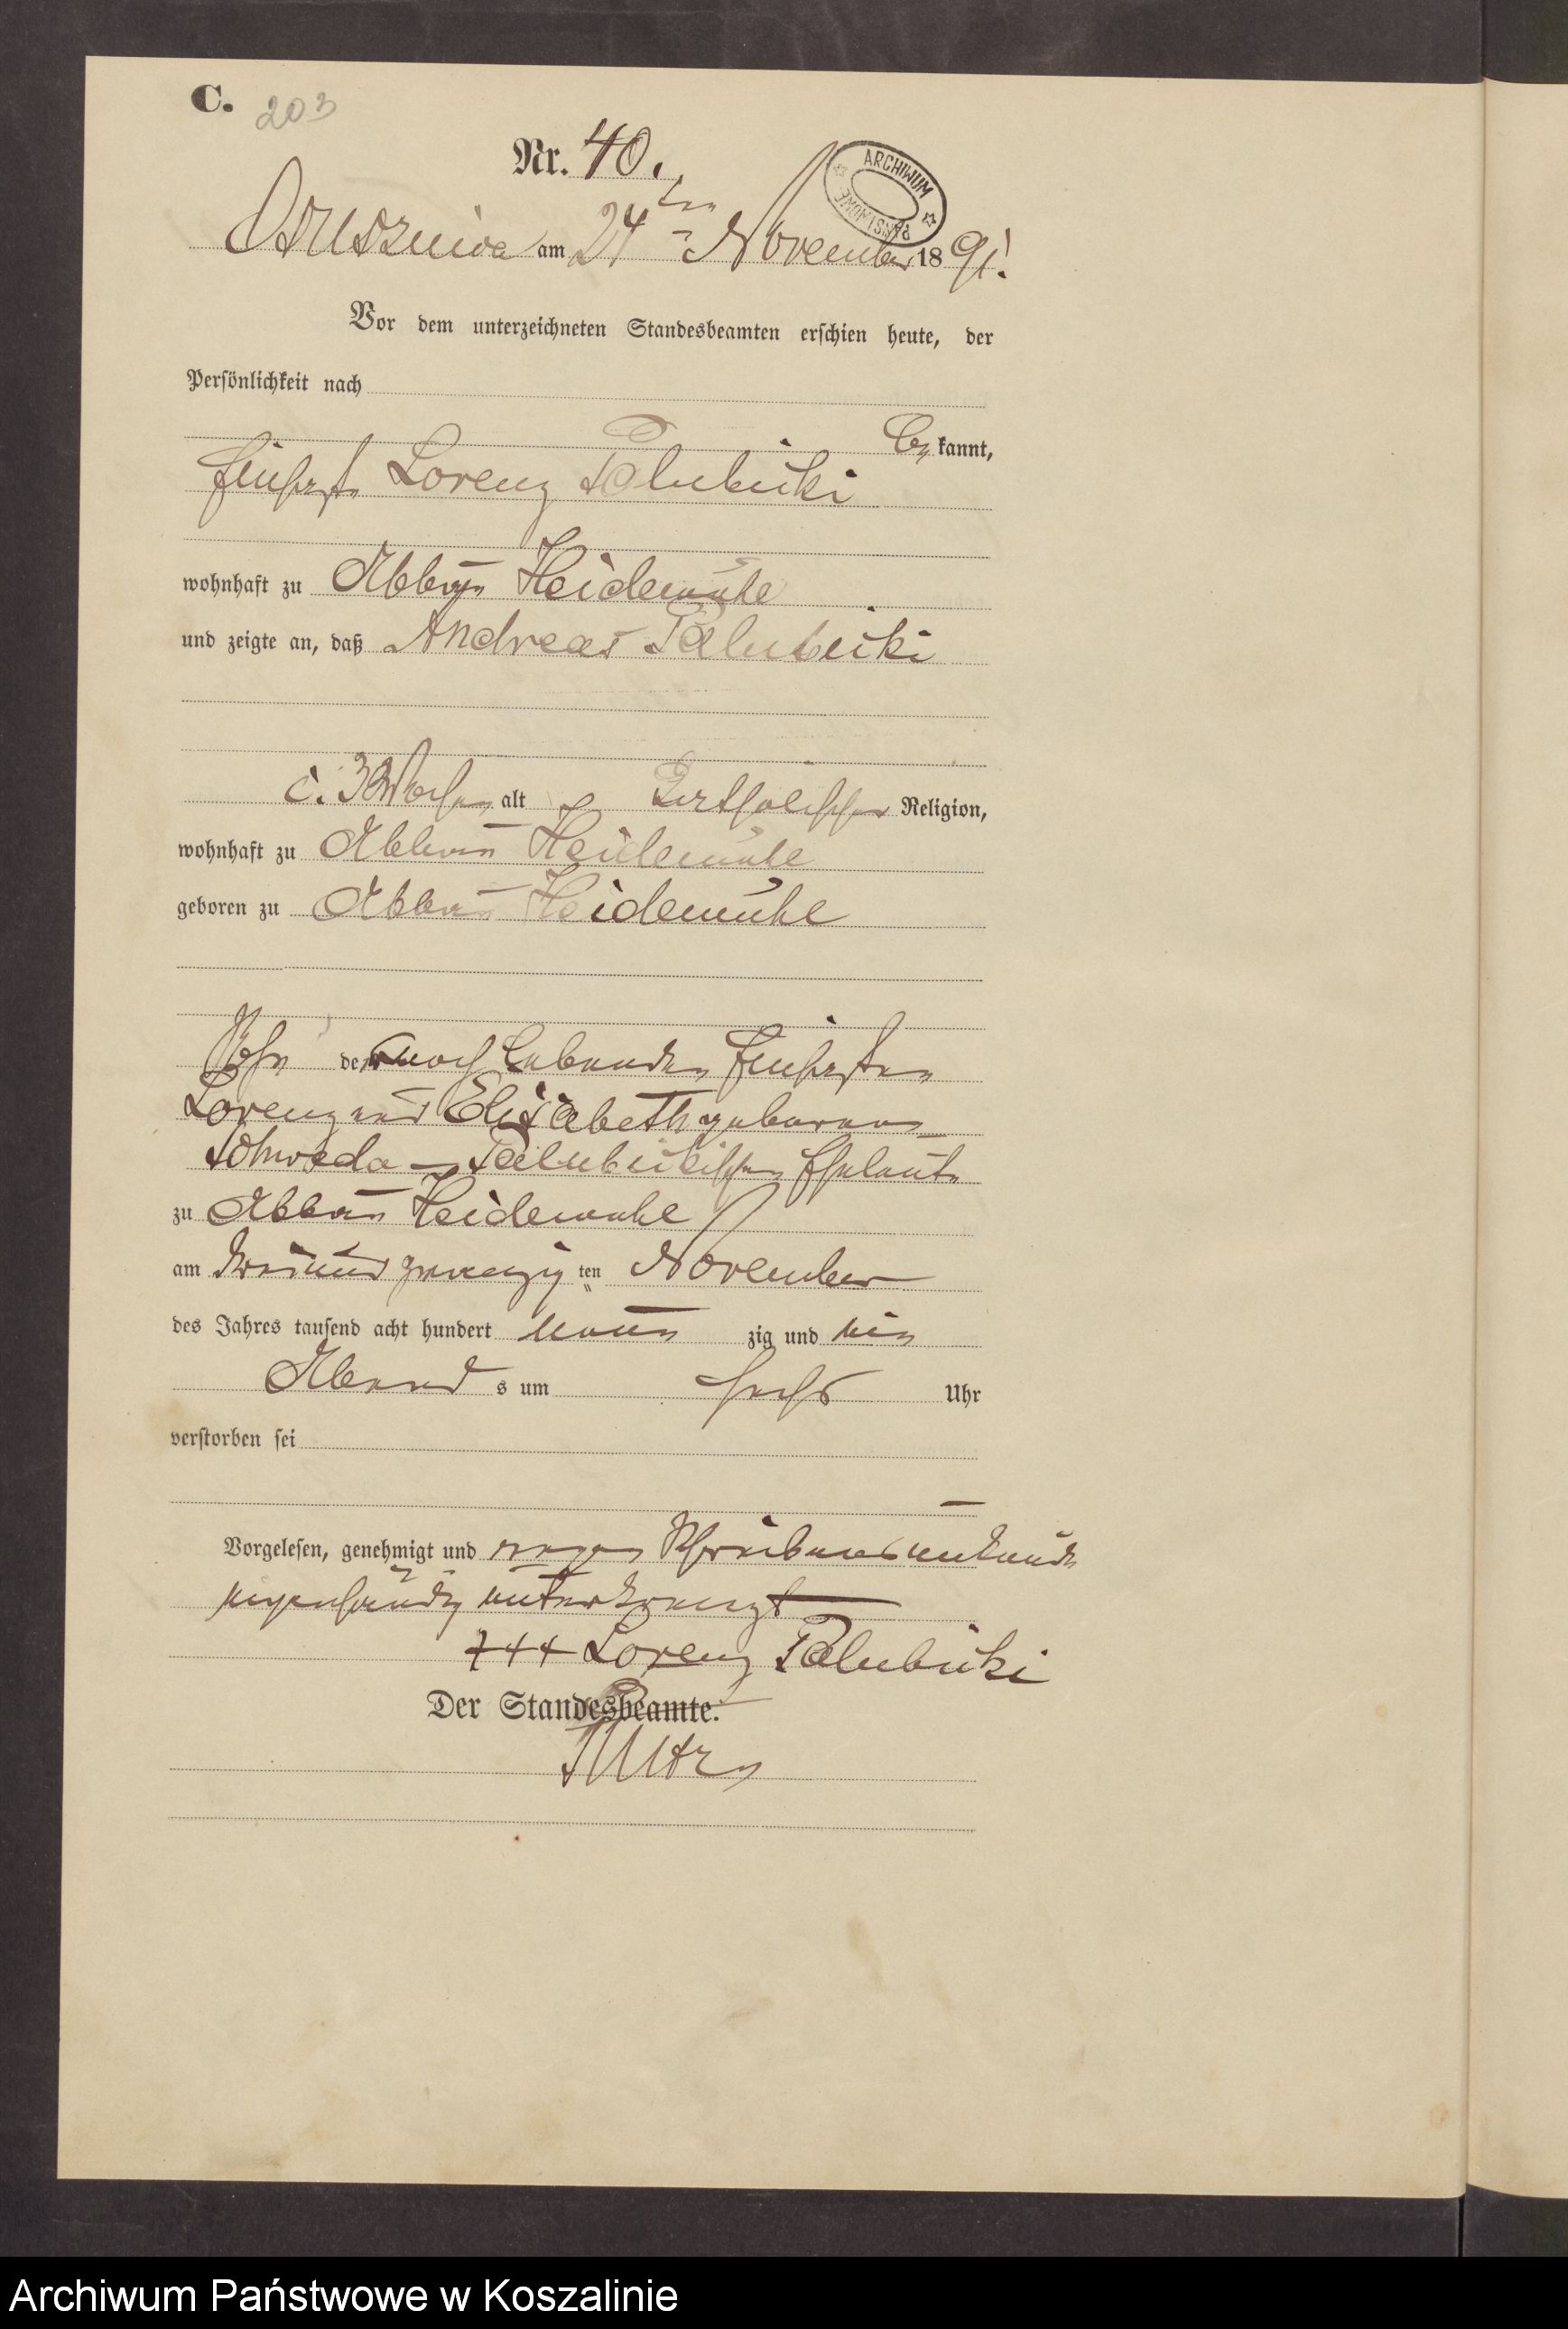 C. 203
Nr. 40.
Ostuszniva am 24ten November 1891.
ARCHIWUM PAŃSTWOWE
Vor dem unterzeichneten Standesbeamten erschien heute, der
Persönlichkeit nach
bekannt,
Lorenz Palubicki
wohnhaft zu Abbau Heidemühl
und zeigte an, daß Andreas Palubicki
c. 3 Wochen alt, katholischer Religion,
wohnhaft zu Abbau Heidemühl
geboren zu Abbau Heidemühl
Sohn der noch lebenden
Lorenz und Elisabeth geborene
Schweda - Palubickischen Eheleute
zu Abbau Heidemühl
am dreiundzwanzig ten November
des Jahres tausend acht hundert neun zig und ein
Abends um sechs Uhr
verstorben sei
Vorgelesen, genehmigt und wegen Schreibensunkunde
eigenhändig unterkreuzt
+++ Lorenz Palubicki
Der Standesbeamte.
Archiwum Państwowe w Koszalinie